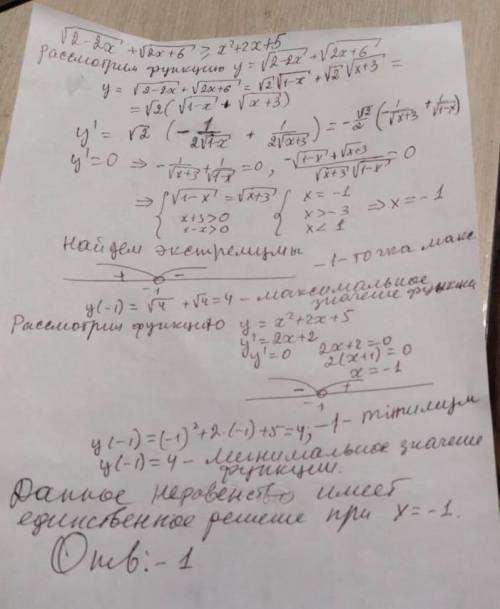 √(2-2x) + √(2x+6) ≥ x²+2x+5
Рассмотрим функцию y = √(2-2x) + √(2x+6)
y = √(2-2x) + √(2x+6) = √2 √(1-x) + √2 √(x+3) =
= √2 (√(1-x) + √(x+3))
y' = √2 (- 1/(2√(1-x)) + 1/(2√(x+3))) = -√2/2 (- 1/√(x+3) + 1/√(1-x))
y'=0 ⇒ - 1/√(x+3) + 1/√(1-x) = 0, (-√(1-x) + √(x+3))/(√(x+3) √(1-x)) = 0
⇒ { √(1-x) = √(x+3) { x = -1
x+3>0 x>-3 ⇒ x = -1
1-x>0 x<1
Найдем экстремумы
+ - -1 - точка макс
-1
y(-1) = √4 + √4 = 4 - максимальное
значение функции
Рассмотрим функцию y = x²+2x+5
y' = 2x+2
y' = 0 2x+2=0
2(x+1) = 0
x = -1
- +
-1
y(-1) = (-1)²+2·(-1)+5=4, -1 -
y(-1) = 4 - минимальное значение
функции.
Данное неравенство имеет
единственное решение при x = -1.
Отв: -1